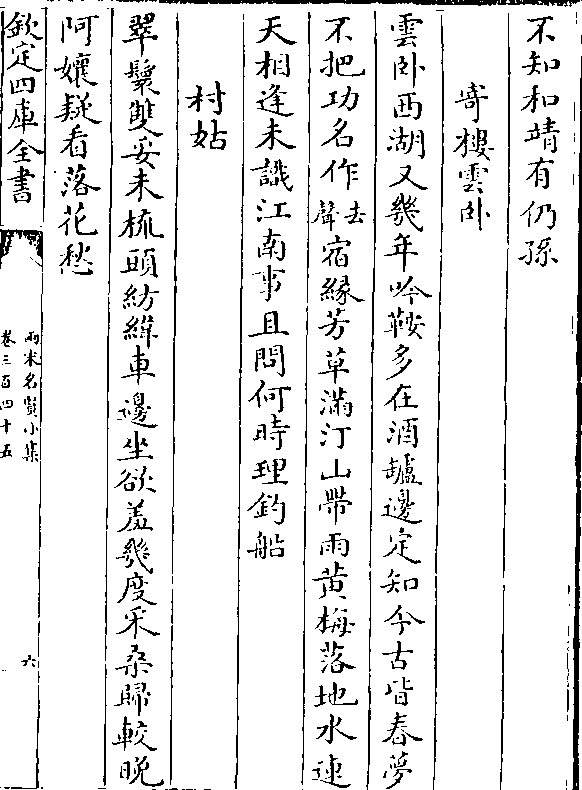 不知和靖有仍孫
寄樓雲卧
雲卧西湖又幾年吟鞍多在酒罏邊定知今古皆春夢
不把功名作去聲宿緣芳草滿汀山帶雨黄梅落地水連
天相逢未識江南事且問何時理釣船
村姑
翠鬟雙妥未梳頭紡緯車邊坐欲羞幾度采桑歸較晚
阿孃疑看落花愁
欽定四庫全書
兩宋名賢小集
卷三百四十五
六